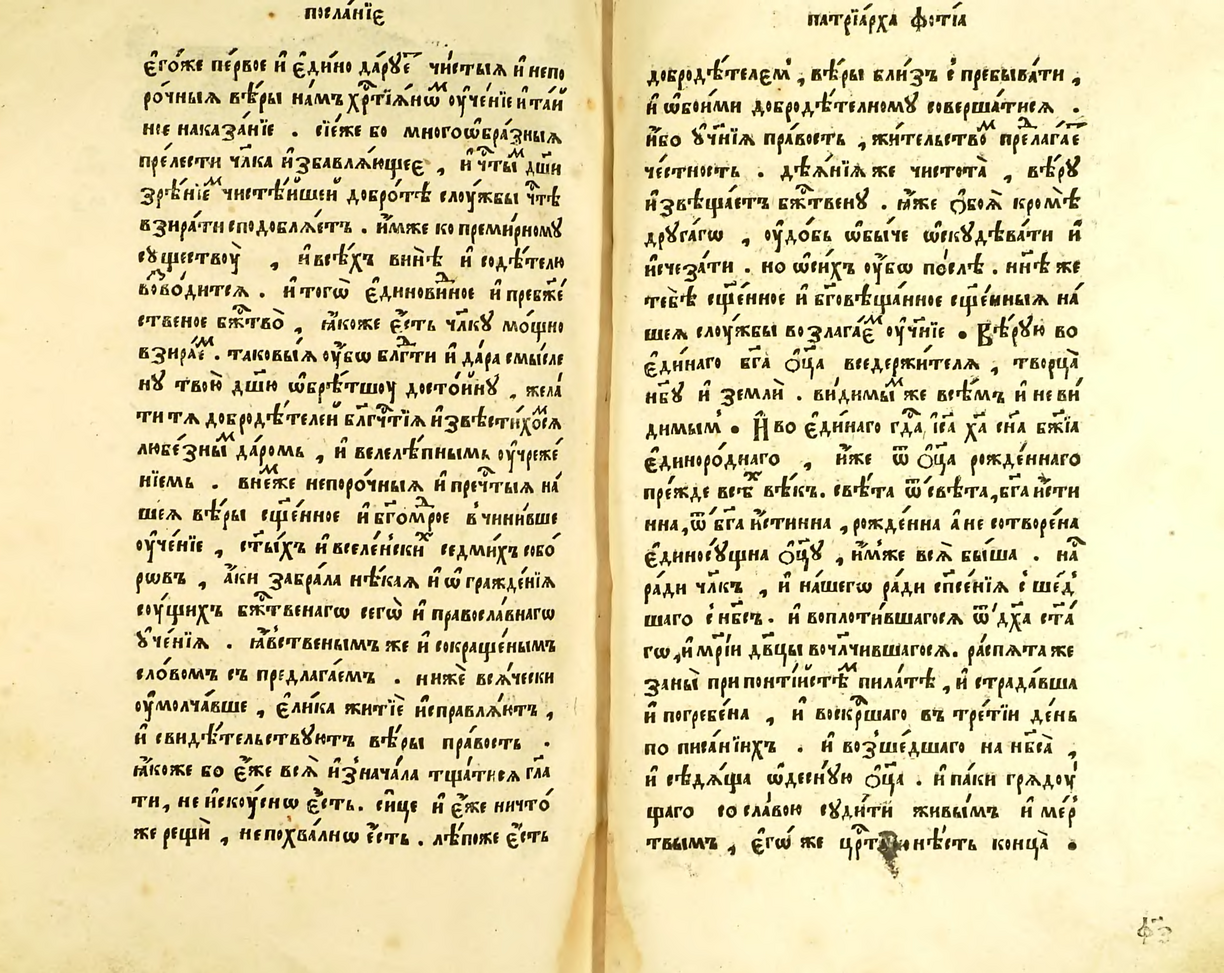 посла́нїє
є҆го́же пе́рвое и҆ є҆ди́но да́руеⷮ чи́стыѧ и҆ непо
ро́чныѧ вѣ́ры на́мъ хрⷭ҇тїѧ́нѡⷨ ѹ҆че́нїе и҆ та́й
ное наказа́нїе . сїе́же бо многоѡ҆бра́зныѧ
пре́лести чл҃ка и҆збавлѧ́ющеє , и҆ чⷭ҇тыⷨ дш҃и
зрѣ́нїеⷨ чистѣ́йшей добро́тѣ слоу́жбы чⷭ҇тѣ
взира́ти сподоблѧ́етъ . и҆́мже ко премирному
существоу̀ , и҆ всѣ́хъ винѣ̀ и҆ содѣ́телю
во́водитсѧ . и҆ того̀ є҆динови́ⷣное и҆ пребж҃е́
ственое бжⷭ҇тво̀ , ꙗ҆́коже є҆́сть чл҃ку мо́щно
взира́еⷨ . таковы́ѧ ѹ҆́бѡ блгⷣти и҆ да́ра смысле
ну твою̀ дш҃ю ѡ҆брѣ́тшоу досто́йну , жела́
ти тѧ добродѣ́телей блгⷭ҇тїѧ и҆звѣсти́хоⷨсѧ
любе́зныⷨ да́ромь , и҆ велелѣ́пнымь ѹ҆чреже́
нїемь . вне́же непоро́чныѧ и҆ пречⷭ҇тыѧ на́
шеѧ вѣ́ры сщ҃е́нное и҆ бг҃омⷣрое в̾чини́вше
ѹ҆че́нїе , ст҃ы́хъ и҆ вселе́нскиⷯ седми́хъ собо́
ровъ , а҆́ки забра́ла нѣ́каѧ и҆ ѡ҆гражде́нїѧ
соу́щихъ бжⷭ҇твенагѡ сегѡ̀ и҆ правосла́внагѡ
ѹ҆че́нїѧ . ꙗ҆́вственымъ же и҆ сокраще́нымъ
сло́вомъ съ предлага́емъ . нижѐ всѧ́чески
ѹ҆молча́вше , є҆ли́ка житїѐ и҆справлѧ́ютъ ,
и҆ свидѣ́тельствуютъ вѣ́ры пра́вость .
ꙗ҆́коже бо є҆́же всѧ̀ и҆знача́ла тща́тисѧ гл҃а
ти , не и҆скоу́снѡ є҆́сть . си́це и҆ є҆́же ничто́
же рещѝ , непохва́лнѡ є҆́сть . лѣ́поже є҆́сть
патрїа́рха фѡ́тїа
добродѣ́телем̾ , вѣ́ры бли́зъ с̾ пребыва́ти ,
и҆ ѡ҆бои́ми добродѣ́телному соверша́тисѧ .
и҆́бо ѹ҆чн҃їѧ пра́вость , жи́тельствоⷨ преⷣлага́еⷮ
че́стность . дѣѧ́нїѧ же чистота̀ , вѣ́ру
и҆звѣща́етъ бжⷭ҇твену . ꙗ҆́же ѻ҆боѧ̀ кромѣ̀
друга́гѡ , ѹ҆до́бь ѡ҆бы́че ѡ҆скудѣва́ти и҆
и҆счеза́ти . но ѡ҆ си́хъ ѹ҆́бѡ по́слѣ . нн҃ѣ же
тебѣ̀ сщ҃е́нное и҆ бг҃овѣща́нное сщ҃е́нныѧ на́
шеѧ слоу́жбы возлага́еⷨ ѹ҆че́нїе . Вѣ́рую во
є҆ди́наго бг҃а ѻ҆ц҃а̀ вседержи́телѧ , творца̀
нб҃у и҆ землѝ . ви́димыⷨ же всѣ́мъ и҆ неви́
димым̾ . И҆ во є҆ди́наго гдⷭ҇а і҆с҃а хⷭ҇а сн҃а бж҃їа
є҆диноро́днаго , и҆́же ѿ ѻ҆ц҃а̀ рожде́ннаго
пре́жде всѣⷯ вѣ́къ . свѣ́та ѿ свѣ́та , бг҃а и҆́сти
нна , ѿ бг҃а и҆́стинна , рожде́нна а҆ не сотворе́на
є҆диносу́щна ѻ҆ц҃у̀ , и҆́мже всѧ̀ бы́ша . наⷭ҇
ра́ди чл҃къ , и҆ на́шегѡ ра́ди сп҃се́нїѧ с̾ше́д̾
шаго с̾ нб҃съ . и҆ воплоти́вшагосѧ ѿ дх҃а ст҃а́
гѡ , и҆ мр҃і́и дв҃цы вочл҃чи́вшагосѧ . распѧ́та же
заны̀ при понті́йстѣⷨ пила́тѣ , и҆ страда́вша
и҆ погребе́на , и҆ воскрⷭ҇шаго въ тре́тїи де́нь
по писа́нїихъ . и҆ возше́дшаго на нб҃са̀ ,
и҆ сѣдѧ́ща ѡ҆десну́ю ѻ҆ц҃а̀ . и҆ па́ки грѧдоу́
щаго со сла́вою суди́ти живы́мъ и҆ ме́р
твымъ , є҆гѡ́ же нѣ́сть конца̀ .